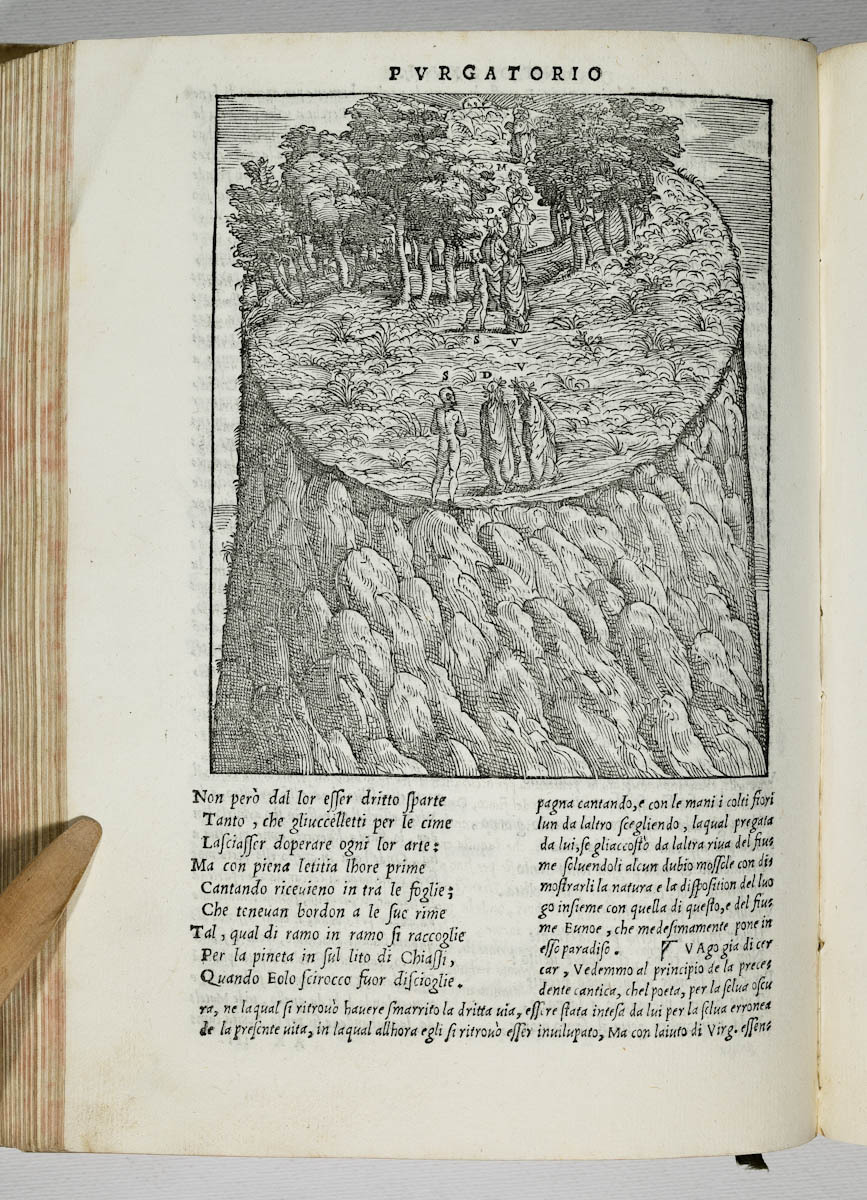 PVRGATORIO
M
D
S V
S D V
Non però dal lor eſſer dritto ſparte
Tanto, che gliuccelletti per le cime
Laſciaſſer doperare ogni lor arte:
Ma con piena letitia lhore prime
Cantando ricevieno in tra le foglie;
Che tenevan bordon a le ſue rime
Tal, qual di ramo in ramo ſi raccoglie
Per la pineta in ſul lito di Chiaſſi,
Quando Eolo ſcirocco fuor diſcioglie.
pagna cantando, e con le mani i colti fiori
lun da laltro ſcegliendo, laqual pregata
da lui, ſe gliaccoſtò da laltra riva del fiu⸗
me ſoluendoli alcun dubio moſſole con di⸗
moſtrarli la natura e la diſpoſition del luo
go inſieme con quella di queſto, e del fiu⸗
me Eunoe, che medeſimamente pone in
eſſo paradiſo. VAgo gia di cer
car, Vedemmo al principio de la prece⸗
dente cantica, chel poeta, per la ſelua oſcu
ra, ne laqual ſi ritrouò hauere ſmarrito la dritta uia, eſſere ſtata inteſa da lui per la ſelua erronea
de la preſente uita, in laqual allhora egli ſi ritrouò eſſer inuilupato, Ma con laiuto di Virg. eſſen⸗